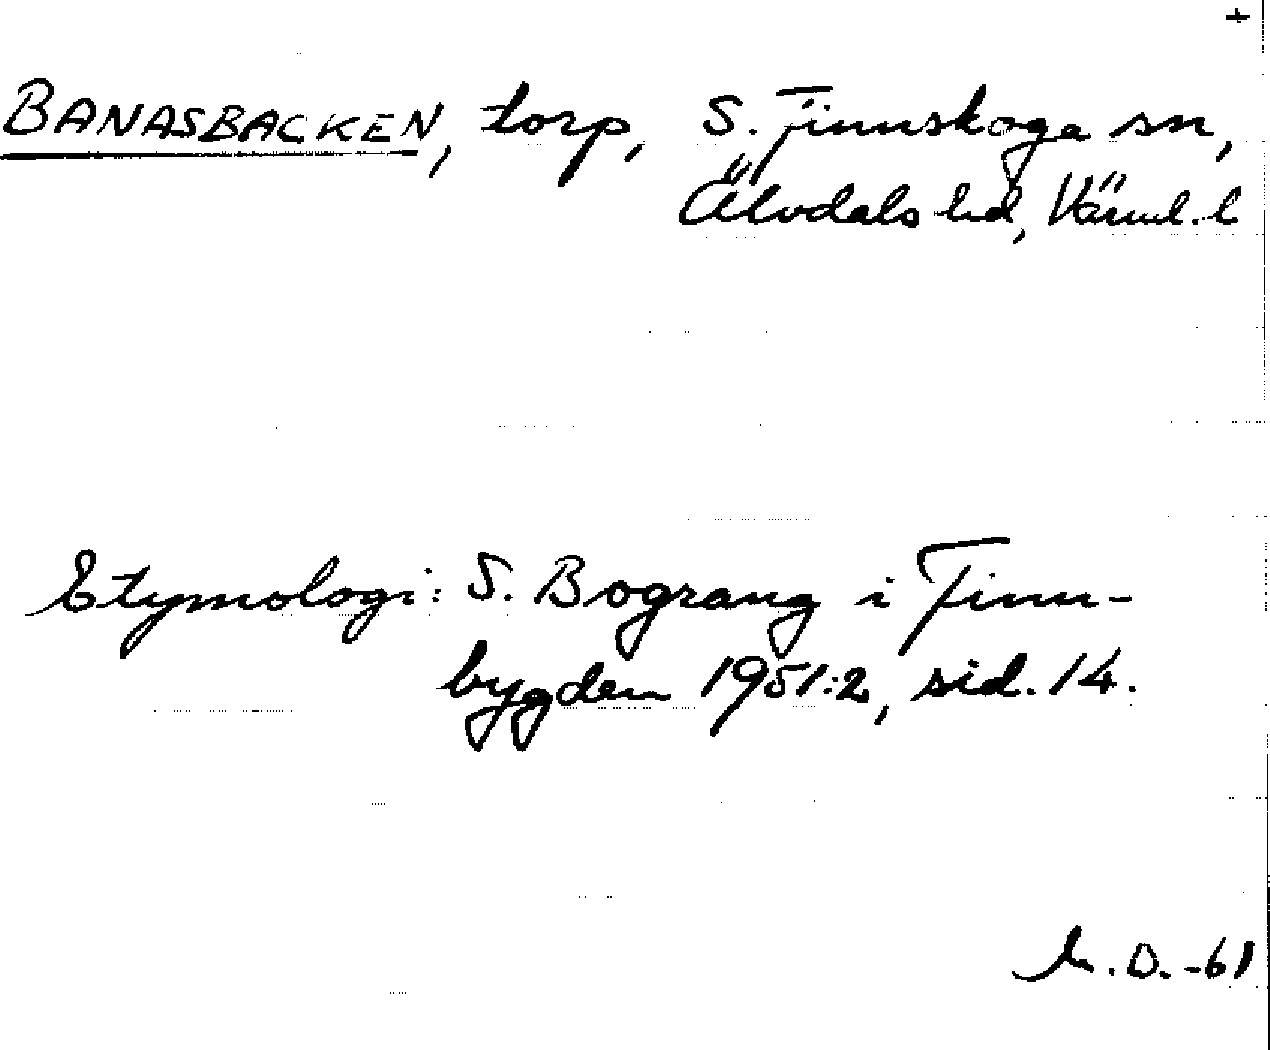 +
BANASBACKEN, torp, S. Finnskoga sn,
Älvdals hd, Värml. l
Etymologi: S. Bograng i Finn-
bygden 1951:2, sid. 14.
D. -61